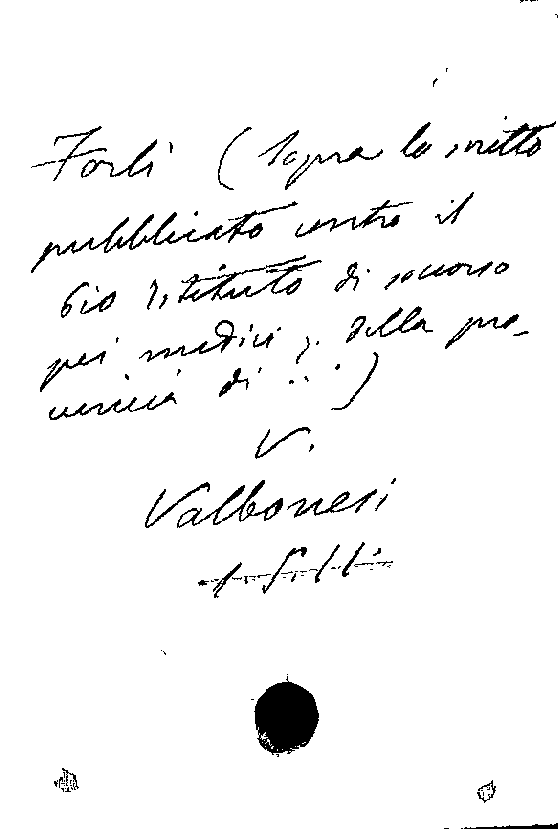 Forlì (Sopra lo scritto
pubblicato contro il
Pio Istituto di soccorso
pei medici della pro-
vincia di ...)
V.
Valbonesi